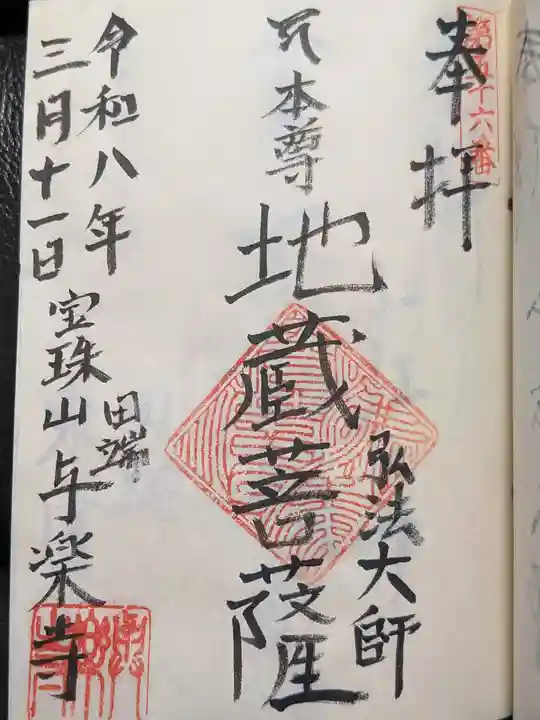 第五十六番
奉拝
弘法大師
本尊
地蔵菩薩
田端
宝珠山与楽寺
令和八年
三月十一日